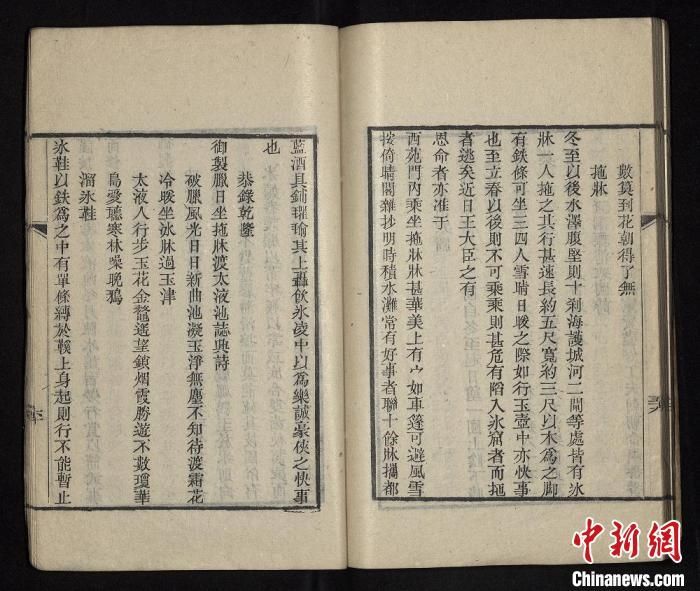 數算到花朝得了無
拖牀
冬至以後水澤腹堅則十剎海護城河二閘等處皆有冰
牀一人拖之其行甚速長約五尺寬約三尺以木爲之脚
有鉄條可坐三四人雪晴日暖之際如行玉壺中亦快事
也至立春以後則不可乘乘則甚危有陷入冰窟者而拖
者逃矣近日王大臣之有
恩命者亦准于
西苑門內乘坐拖牀牀甚華美上有如車篷可避風雪
按倚晴閣雜抄明時積水灘常有好事者聯十餘牀攜都
籃酒具鋪氍毹其上轟飲冰凌中以爲樂誠豪俠之快事
也
恭錄乾隆
御製臘日坐拖牀渡太液池誌興詩
破臘風光日日新曲池凝玉淨無塵不知待渡霜花
冷暖坐冰牀過玉津
太液人行步玉花金鼇遥望鎖烟霞勝遊不數瓊華
島愛聽寒林噪晚鴉
溜冰鞋
冰鞋以鉄爲之中有單條縛於鞵上身起則行不能暫止
中新網
Chinanews.com